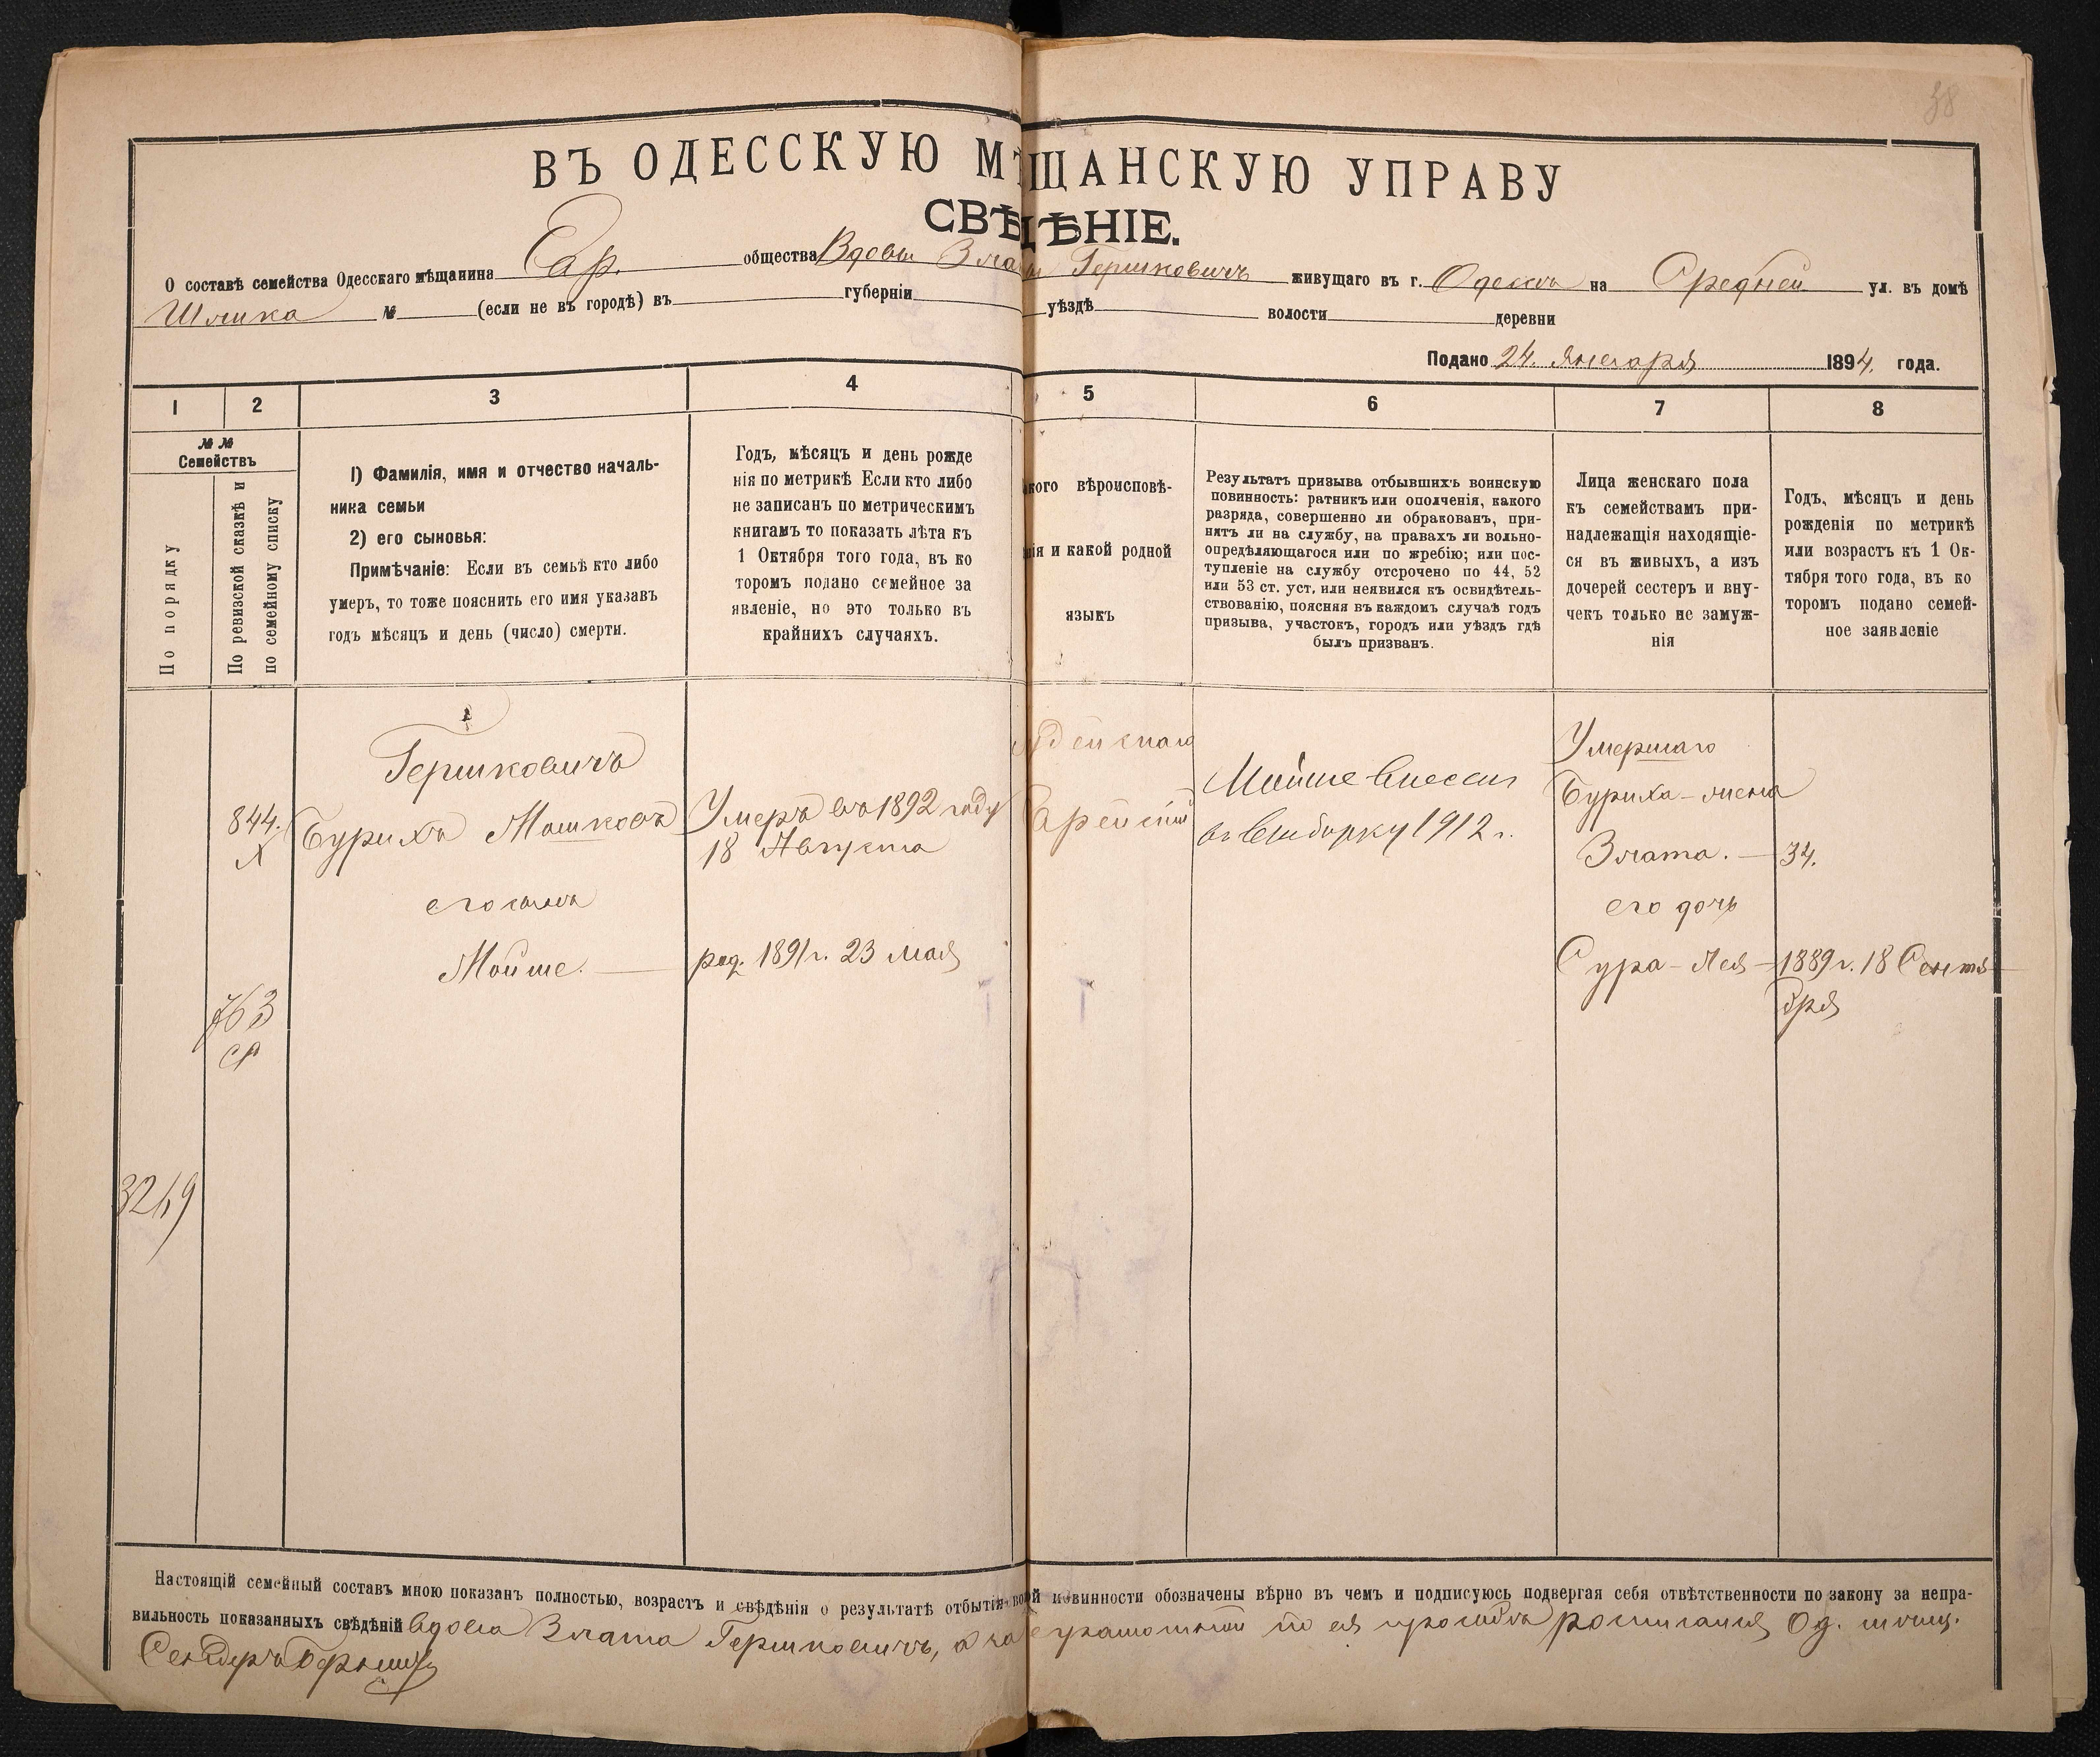 38
ВЪ ОДЕССКУЮ МѢЩАНСКУЮ УПРАВУ
СВѢДѢНІЕ.
О составѣ семейства Одесскаго мѣщанина Евр. общества Вдовы Златы Гершковичъ живущаго въ г. Одессѣ на Средней ул. въ домѣ
№ (если не въ городѣ) въ губерніи уѣздѣ волости деревни
Подано 24. Января 1894. года.
1 2 3 4 5 6 7 8
№ №
Семействъ
По порядку
По ревизской сказкѣ и
по семейному списку
1) Фамилія, имя и отчество началь-
ника семьи
2) его сыновья:
Примѣчаніе: Если въ семьѣ кто либо
умеръ, то тоже пояснить его имя указавъ
годъ мѣсяцъ и день (число) смерти.
Годъ, мѣсяцъ и день рожде
нія по метрикѣ Если кто либо
не записанъ по метрическимъ
книгамъ то показать лѣта къ
1 Октября того года, въ ко
торомъ подано семейное за
явленіе, но это только въ
крайнихъ случаяхъ.
кого вѣроисповѣ-
нія и какой родной
языкъ
Результатъ призыва отбывшихъ воинскую
повинность: ратникъ или ополченія, какого
разряда, совершенно ли обракованъ, при-
нятъ ли на службу, на правахъ ли вольно-
опредѣляющагося или по жребію; или пос-
тупленіе на службу отсрочено по 44, 52
или 53 ст. уст. или неявился къ освидѣтель-
ствованію, поясняя въ каждомъ случаѣ годъ
призыва, участокъ, городъ или уѣздъ гдѣ
былъ призванъ.
Лица женскаго пола
къ семействамъ при-
надлежащія находящіе-
ся въ живыхъ, а изъ
дочерей сестеръ и вну-
чекъ только не замуж-
нія
Годъ, мѣсяцъ и день
рожденія по метрикѣ
или возрастъ къ 1 Ок-
тября того года, въ ко
торомъ подано семей-
ное заявленіе
Гершковичъ
844.
Бурихъ Мошковъ
его сынъ
Мойше.
763
3269
Умеръ въ 1892 году
18 Августа
род. 1891 г. 23 мая
Іудейскаго
Еврейскій
Мойше внесенъ
въ выборку 1912 г.
Умершаго
Буриха-жена
Злата. — 34.
его дочь
Сура-Лея — 1889 г. 18 Сентя-
бря
Настоящій семейный составъ мною показанъ полностью, возрастъ и свѣдѣнія о результатѣ отбытія воинской повинности обозначены вѣрно въ чемъ и подписуюсь подвергая себя отвѣтственности по закону за непра-
вильность показанныхъ свѣдѣній вдова Злата Гершковичъ, а за неграмотной по ея просьбѣ росписался Од. мѣщ.
Сендеръ